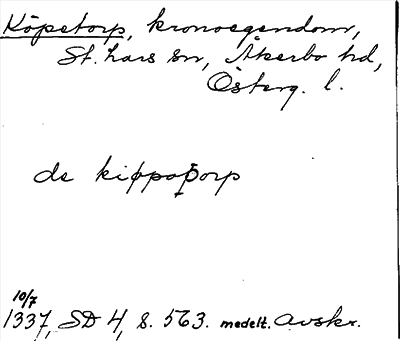 Köpetorp, kronoegendom,
St. Lars sn, Åkerbo hd,
Österg. l.
de kiøpaþorp
10/7
1337, SD 4, s. 563. medelt. avskr.